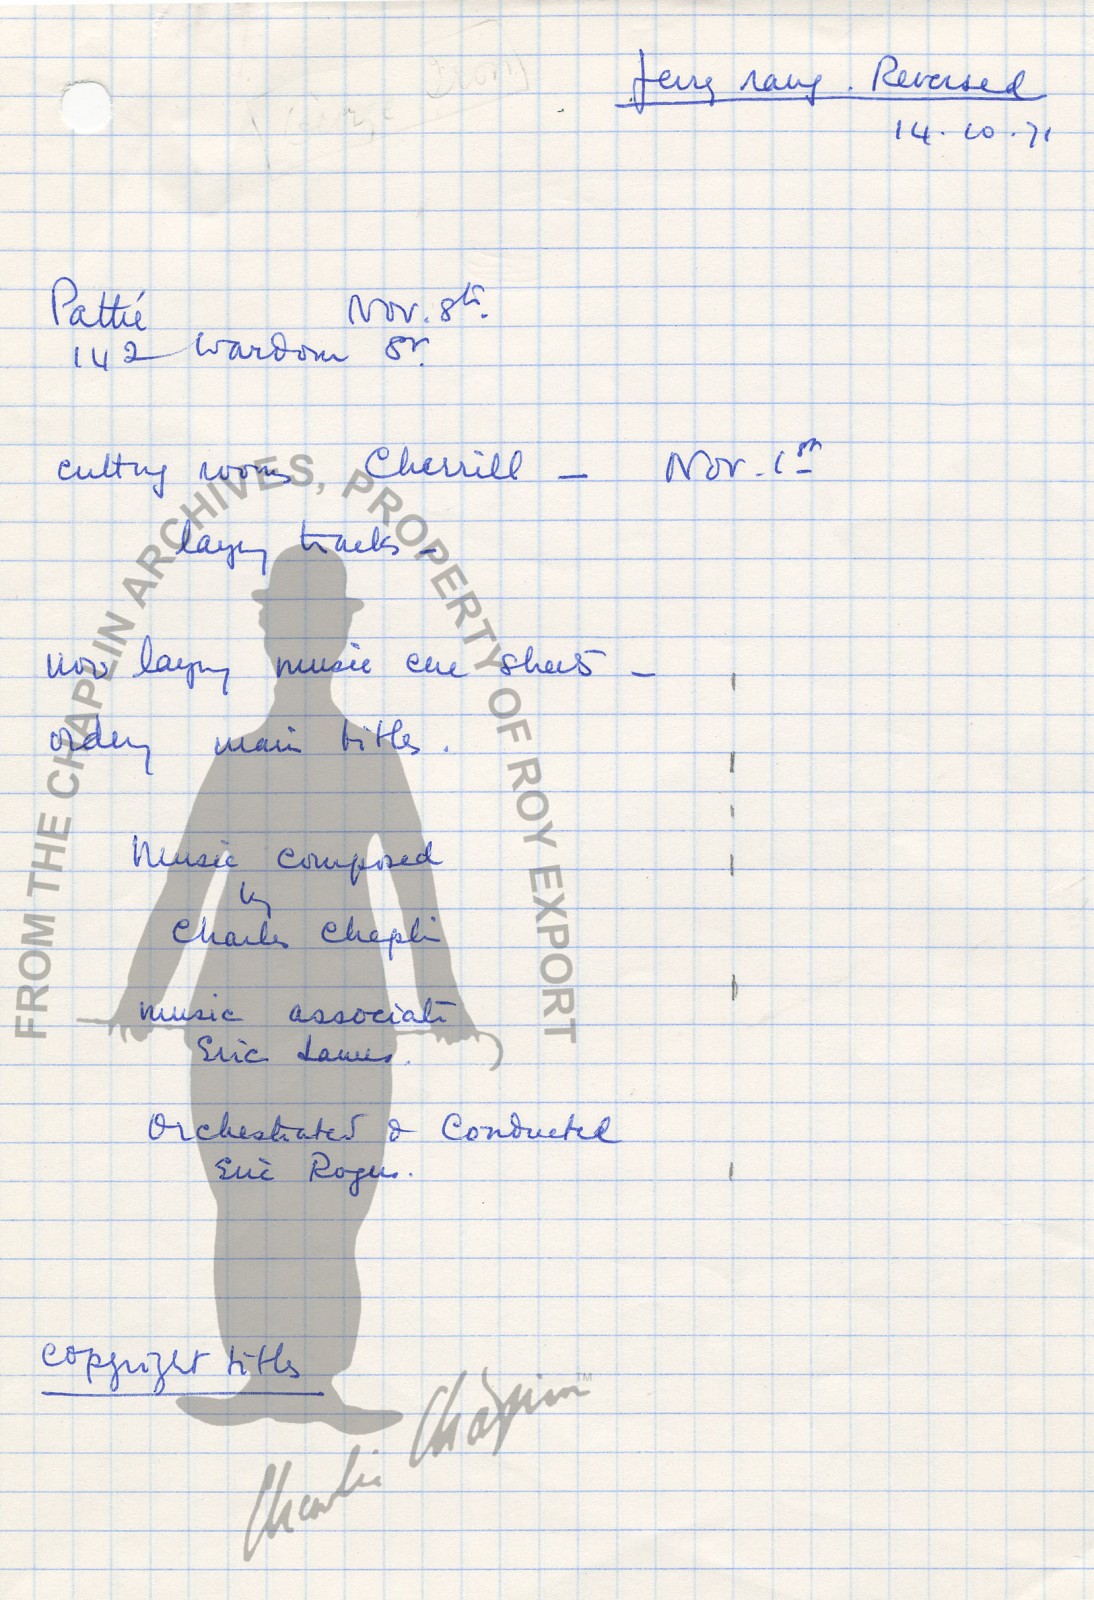 Jerry rang. Reversed
14.10.71
Pathé Nov. 8th.
142 Wardom St.
cutting rooms Cherrill - Nov. 1st
laying tracks -
now laying music cue sheets -
ordering main titles.
Music composed
by
Charles Chaplin
music associate
Eric James.
Orchestrated & Conducted
Eric Rogers.
copyright titles
FROM THE CHAPLIN ARCHIVES, PROPERTY OF ROY EXPORT
Charlie Chaplin™